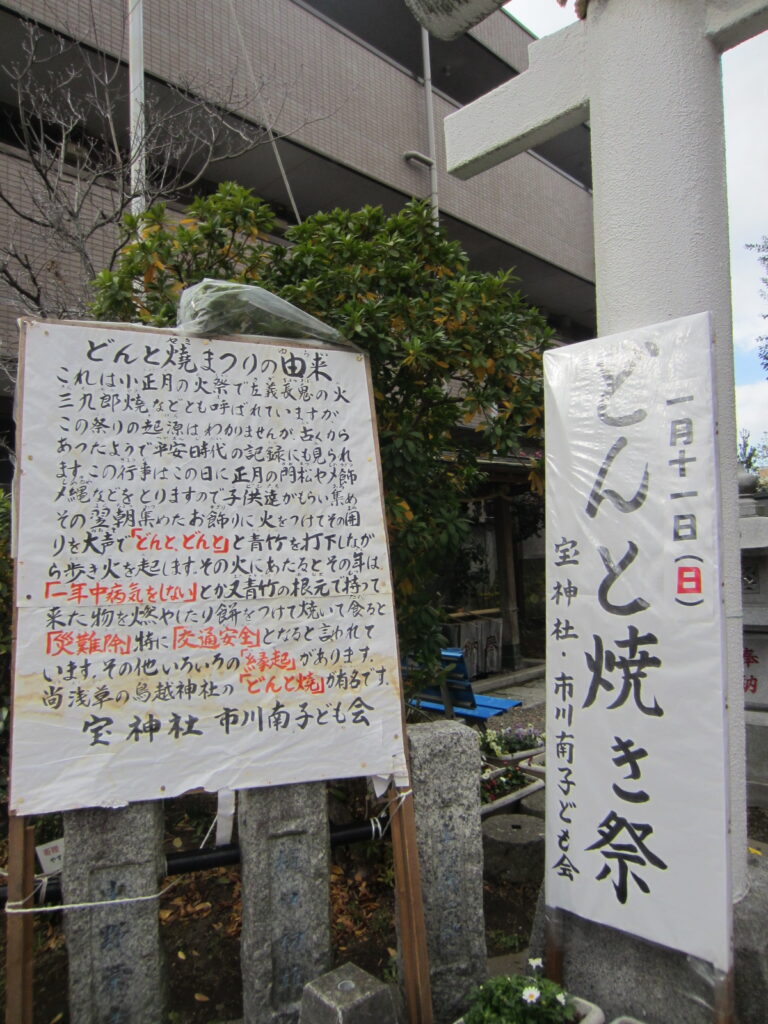 どんと焼まつりの由来
これは小正月の火祭で左義長鬼の火
三九郎焼などとも呼ばれていますが
この祭りの起源はわかりませんが、古くから
あったようで平安時代の記録にも見られ
ます。この行事はこの日に正月の門松や〆飾
〆縄などをとりますので子供達がもらい集め
その翌朝集めたお飾りに火をつけてその周
りを大声で「どんと、どんと」と青竹を打下しなが
ら歩き火を起します。その火にあたるとその年は
「一年中病気をしない」とか又青竹の根元で持って
来た物を燃やしたり餅をつけて焼いて食ると
「災難除」特に「交通安全」となると言われて
います。その他いろいろの「縁起」があります。
尚浅草の鳥越神社の「どんと焼」が有名です。
宝神社 市川南子ども会
一月十一日(日)
どんと焼き祭
宝神社・市川南子ども会